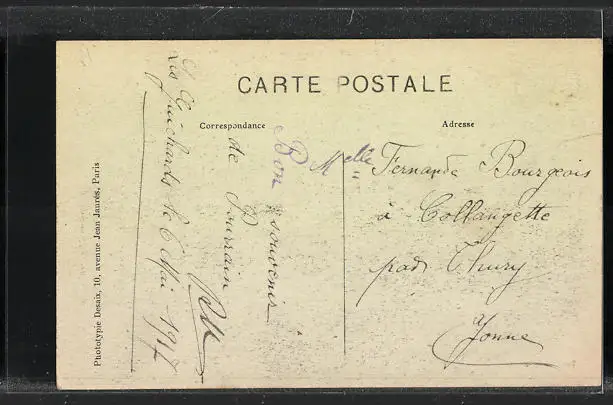 CARTE POSTALE
Correspondance
Adresse
Les Guichards le 6 Mai 1917
Bon souvenir
de Pourrain
Melle Fernande Bourgeois
à Collangette
par Thury
Yonne
Phototypie Desaix, 10, avenue Jean Jaurès, Paris